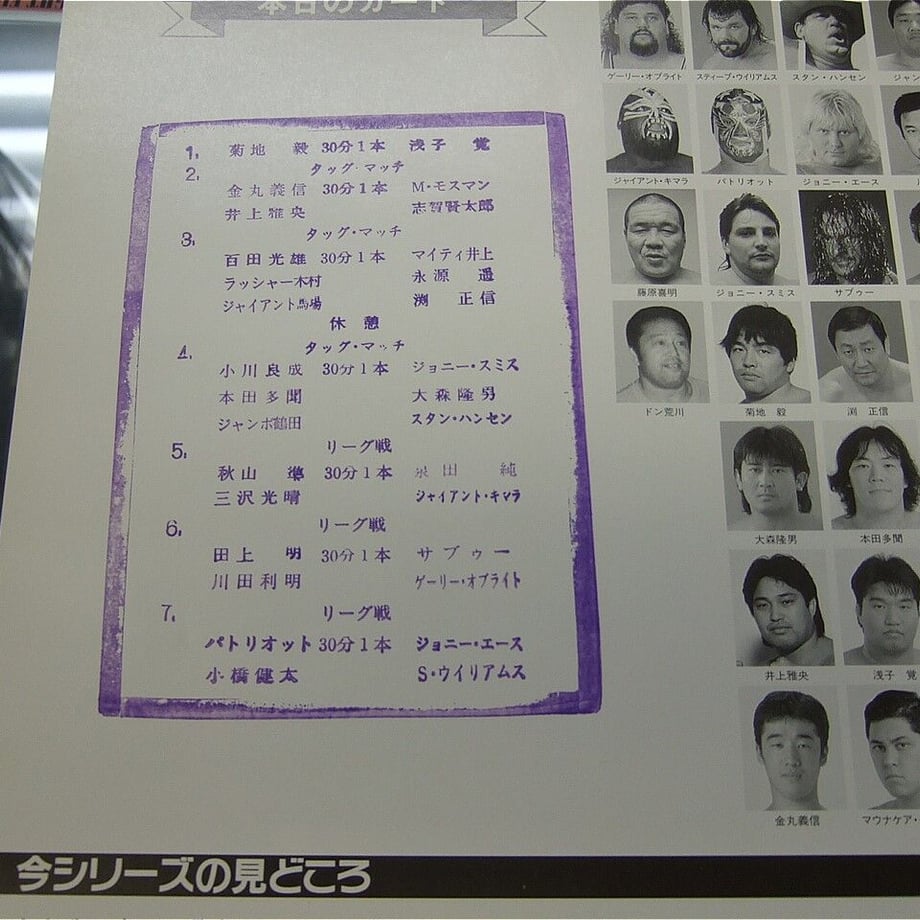 本日のカード
1. 菊地 毅 30分1本 浅子 覚
2. タッグ・マッチ
金丸義信 30分1本 M・モスマン
井上雅央 志賀賢太郎
3. タッグ・マッチ
百田光雄 30分1本 マイティ井上
ラッシャー木村 永源 遙
ジャイアント馬場 渕 正信
休憩
4. タッグ・マッチ
小川良成 30分1本 ジョニー・スミス
本田多聞 大森隆男
ジャンボ鶴田 スタン・ハンセン
5. リーグ戦
秋山 準 30分1本 泉田 純
三沢光晴 ジャイアント・キマラ
6. リーグ戦
田上 明 30分1本 サブゥー
川田利明 ゲーリー・オブライト
7. リーグ戦
パトリオット 30分1本 ジョニー・エース
小橋健太 S・ウイリアムス
ゲーリー・オブライト スティーブ・ウイリアムス スタン・ハンセン ジャン
ジャイアント・キマラ パトリオット ジョニー・エース
藤原喜明 ジョニー・スミス サブゥー
ドン荒川 菊地 毅 渕 正信
大森隆男 本田多聞
井上雅央 浅子 覚
金丸義信 マウナケア・
今シリーズの見どころ